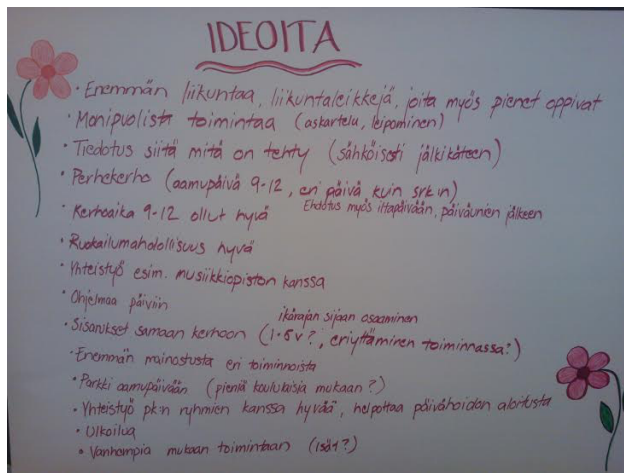 IDEOITA
• Enemmän liikuntaa, liikuntaleikkejä, joita myös pienet oppivat
• Monipuolista toimintaa (askartelu, leipominen)
• Tiedotus siitä mitä on tehty (sähköisesti jälkikäteen)
• Perhekerho (aamupäivä 9-12, eri päivä kuin srk:n)
• Kerhoaika 9-12 ollut hyvä
Ehdotus myös iltapäivään, päiväunien jälkeen
• Ruokailumahdollisuus hyvä
• Yhteistyö esim. musiikkiopiston kanssa
• Ohjelmaa päiviin
ikärajan sijaan osaaminen
• Sisarukset samaan kerhoon (1-6v?, eriyttäminen toiminnassa?)
• Enemmän mainostusta eri toiminnoista
• Parkki aamupäivään (pieniä koululaisia mukaan?)
• Yhteistyö pk:n ryhmien kanssa hyvää, helpottaa päivähoidon aloitusta
• Ulkoilua
• Vanhempia mukaan toimintaan (isät?)